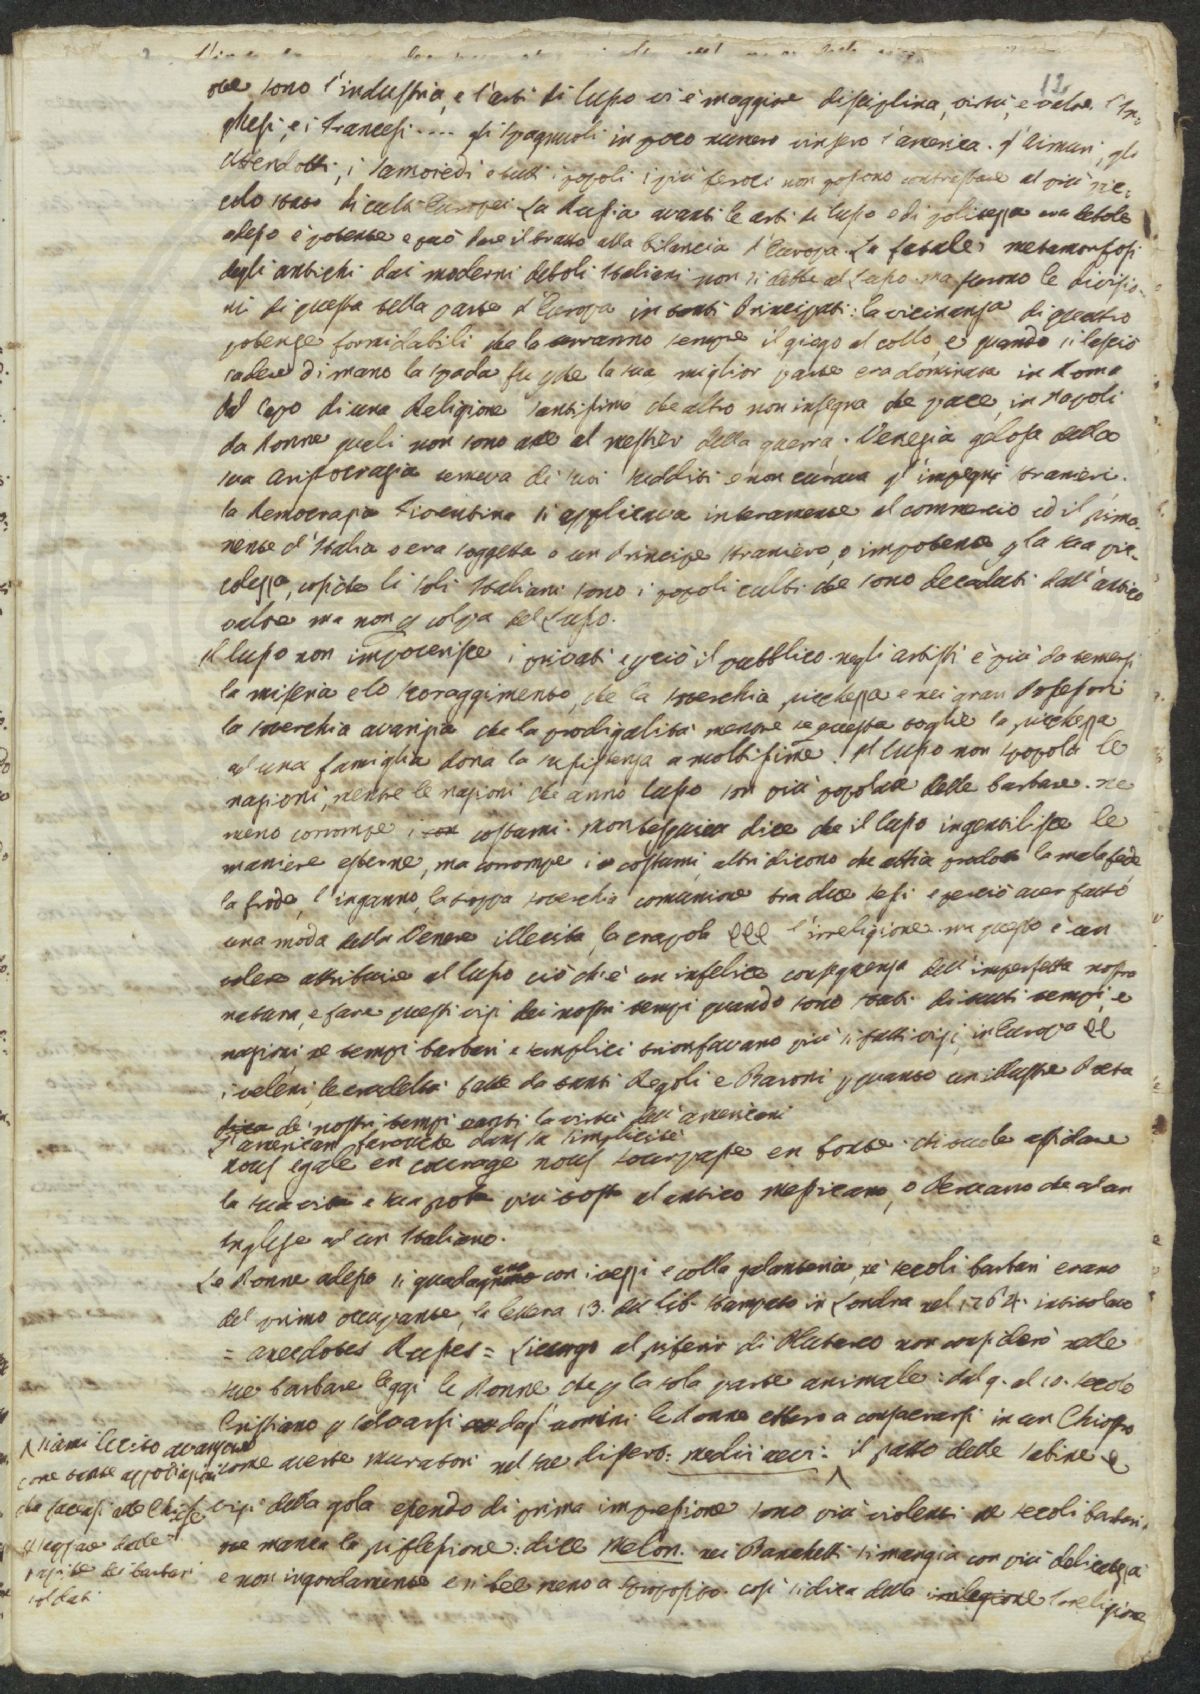 12
ove sono l'industria, e l'arti di lusso vi è maggiore disciplina, virtù, e valore. l'In-
glesi, e i Francesi.... gli Spagnuoli in poco numero vinsero l'America. gl'Aimuri, gli
Ottentotti, i Samoiedi e tutti i popoli i più feroci non possono contrastare al più pic-
colo stato di culti Europei. La Russia avanti le arti di lusso e di politezza era debole
adesso è potente e può dare il tratto alla bilancia d'Europa. La fatale metamorfosi
degli antichi dai moderni deboli Italiani non si dette al Lusso. ma furono le divisio-
ni di questa bella parte d'Europa in tanti Principati: la vicinanza di quattro
potenze formidabili che le terranno sempre il giogo al collo, e quando si lasciò
cadere di mano la spada fu che la sua miglior parte era dominata in Roma
dal Capo di una Religione santissima che altro non insegna che pace, in Napoli
da Donne quali non sono atte al mestier della guerra. Venezia gelosa della
sua aristocrazia temeva di suoi sudditi e non curava gl'impegni stranieri.
la Democrazia Fiorentina si applicava interamente al commercio ed il rima-
nente d'Italia o era soggetta a un Principe straniero, o impotente p la sua pic-
colezza, cosichè li soli Italiani sono i popoli culti che sono decaduti dall'antico
valore ma non p colpa del Lusso.
Il lusso non impoverisce i privati e perciò il pubblico. negli artisti è più da temersi
la miseria e lo scoraggimento, che la soverchia ricchezza e nei gran Possessori
la soverchia avarizia che la prodigalità mentre se questa toglie la ricchezza
ad una famiglia dona la sussistenza a moltissime. Il lusso non spopola le
nazioni, mentre le nazioni che anno lusso son più popolate delle barbare. ne
meno corrompe i costumi. Montesquieu dice che il lusso ingentilisce le
maniere esterne, ma corrompe i costumi, altri dicono che abbia prodotta la mala fede
la frode, l'inganno, la troppa soverchia comunione tra due sessi e perciò aver fatto
una moda della Venere illecita, la crapola l'irreligione. ma questo è un
volere attribuire al lusso ciò ch'è un infelice conseguenza dell'imperfetta nostra
natura, e fare questi vizi dei nostri tempi quando sono stati di tutti tempi, e
nazioni, ne tempi barbari e semplici trionfavano più si fatti vizi, in Europa
i veleni, le crudeltà fatte da tanti Regoli e Baroni p quanto un illustre Poeta
de' nostri tempi canti la virtù dell'americani
L'americain farouche dans sa simplicité
nous egale en courage nous sourpasse en bonté. chi vuole affidare
la sua vita e sua roba più tosto al antico Messicano, o Peruano che ad un
Inglese ad un Italiano.
Le Donne adesso si guadagnano con i vezzi e colla galanteria, ne' secoli barbari erano
del primo occupante, la lettera 13. del lib. stampato in Londra nel 1764. intitolato
= anecdotes Russes = Licurgo al riferir di Plutarco non considerò nelle
sue barbare leggi le Donne che p la sola parte animale: dal 9. al 10. secolo
Cristiano p salvarsi dagl'uomini le Donne ebbero a consacrarsi in un Chiostro
come avverte Muratori nel sue dissert: medii aevi: il ratto delle Sabine e
vizi della gola essendo di prima impressione sono più violenti ne secoli barbari,
ove manca la riflessione: dice Melon. nei Banchetti si mangia con più delicatezza
e non ingordamente e si bee meno a sproposito. così si dica della irreligione
siami lecito
come tante
alle Chiese
delle
dei barbari
soldati